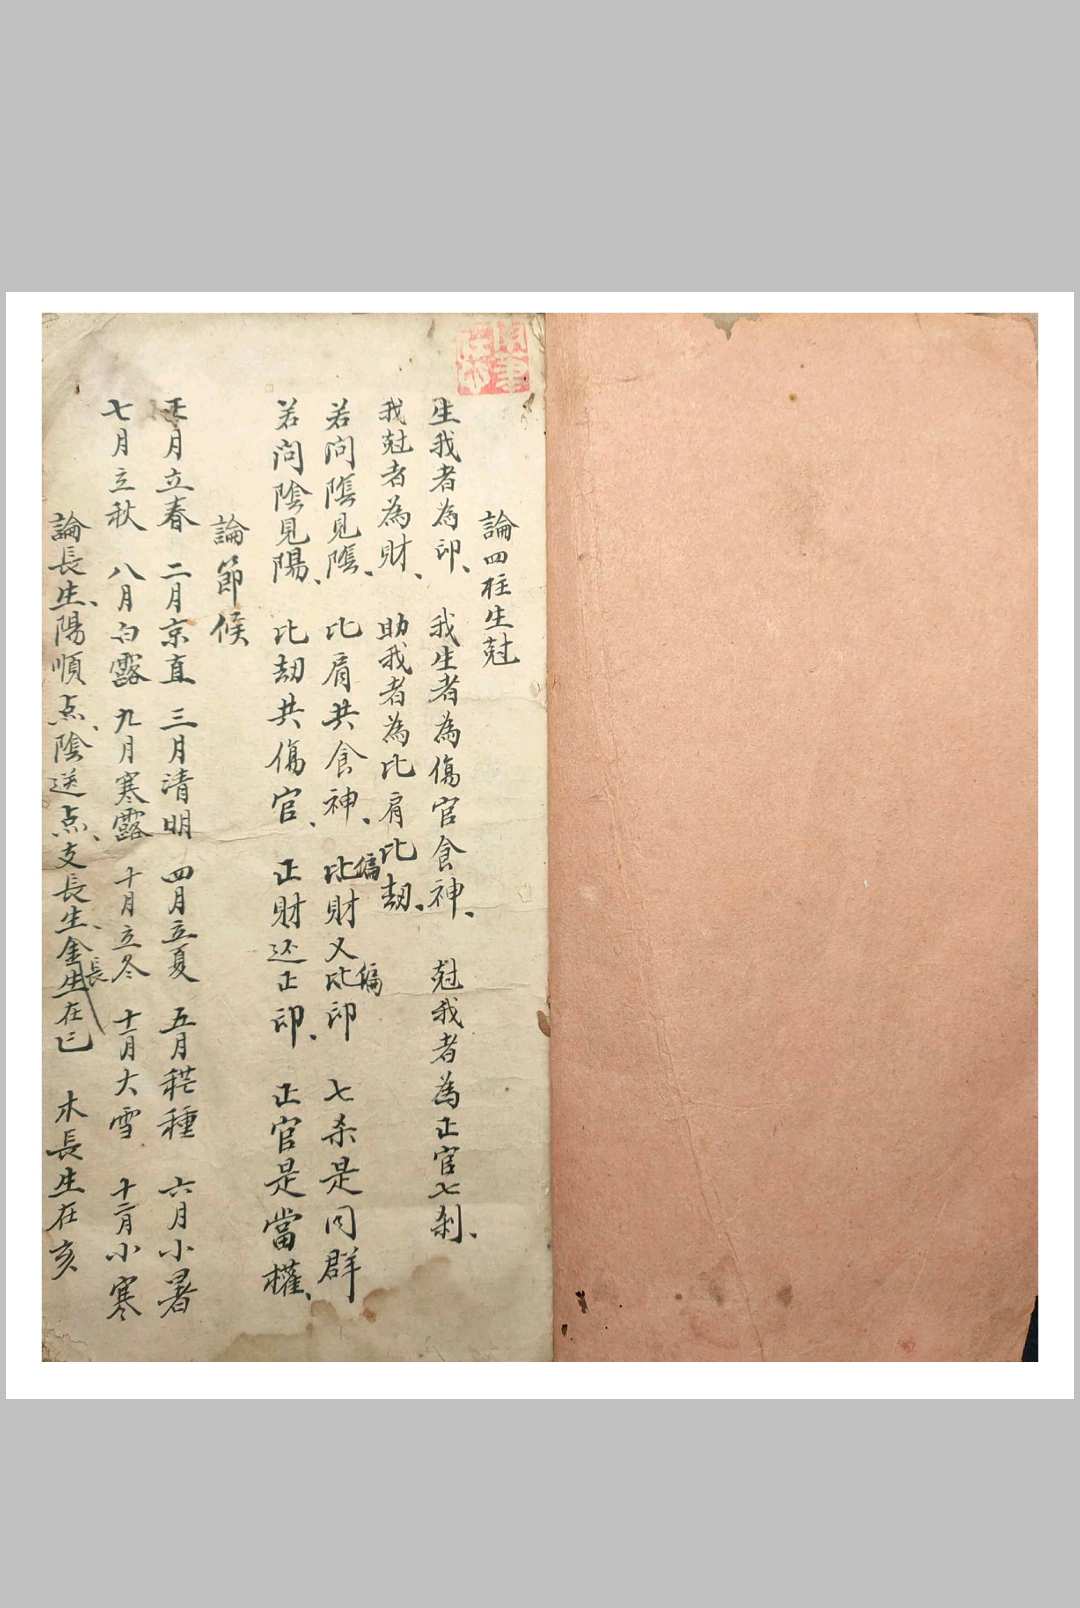 論四柱生尅
生我者為印、 我生者為傷官食神、 尅我者為正官七剎、
我尅者為財、 助我者為比肩比劫、
若問陰見陰、 比肩共食神、 偏財又偏印 七杀是同群
若問陰見陽、 比劫共傷官、 正財还正印、 正官是當權、
論節候
正月立春 二月京直 三月清明 四月立夏 五月秐種 六月小暑
七月立秋 八月白露 九月寒露 十月立冬 十一月大雪 十二月小寒
論長生、陽順点、陰送点、支長生、金長生在巳 木長生在亥